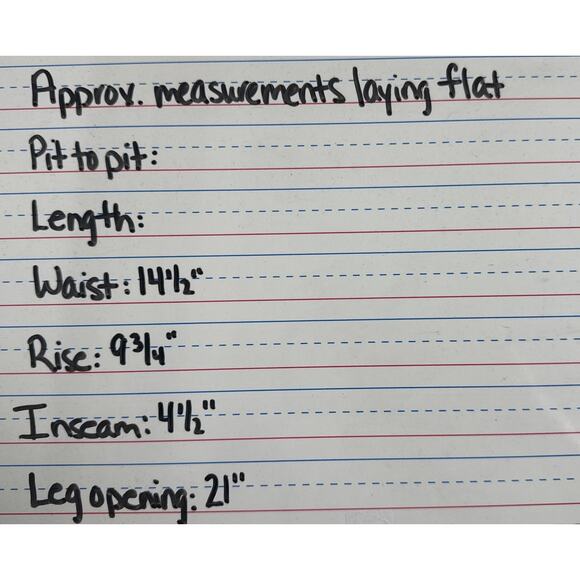 Approx. measurements laying flat
Pit to pit:
Length:
Waist: 14½"
Rise: 9¾"
Inseam: 4½"
Leg opening: 21"